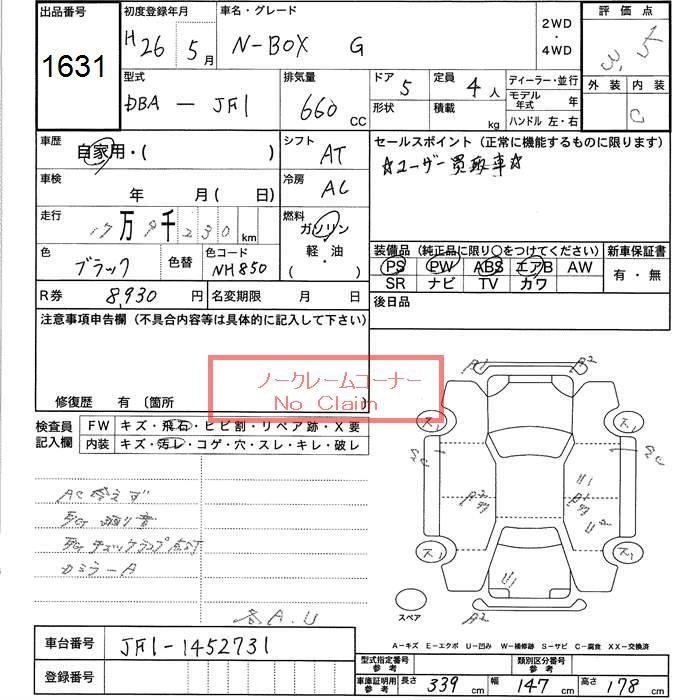 出品番号 初度登録年月 車名・グレード 2WD・4WD 評価点
1631 H26 5月 N-BOX G 3.5
型式 排気量 ドア 5 定員 4人 ディーラー・並行 外装 内装
DBA-JF1 660 CC 形状 積載 kg モデル年式 年 C
ハンドル 左・右
車歴 自家用・( ) シフト AT セールスポイント (正常に機能するものに限ります)
☆ユーザー買取車☆
車検 年 月( 日) 冷房 AC
走行 17万9千230km 燃料 ガソリン
軽・油
・( )
色 ブラック 色替 色コード NH850
装備品 (純正品に限り○をつけてください) 新車保証書
PS PW ABS エアB AW 有・無
SR ナビ TV カワ
R券 8,930円 名変期限 月 日 後日品
注意事項申告欄 (不具合内容等は具体的に記入して下さい)
ノークレームコーナー
No Claim
修復歴 有 〔箇所
検査員記入欄 FW キズ・飛石・ヒビ割・リペア跡・X要
内装 キズ・汚レ・コゲ・穴・スレ・キレ・破レ
AC冷えず
チェックランプ点灯
Dミラ-A
各A.U
A1 A2
ス1 ス1
A2
ス1 ス1
U1
A2
スペア
A-キズ E-エクボ U-凹み W-補修跡 S-サビ C-腐食 XX-交換済
車台番号 JF1-1452731
型式指定番号 参考 類別区分番号 参考
登録番号
車庫証明用 参考 長さ 339cm 幅 147cm 高さ 178cm